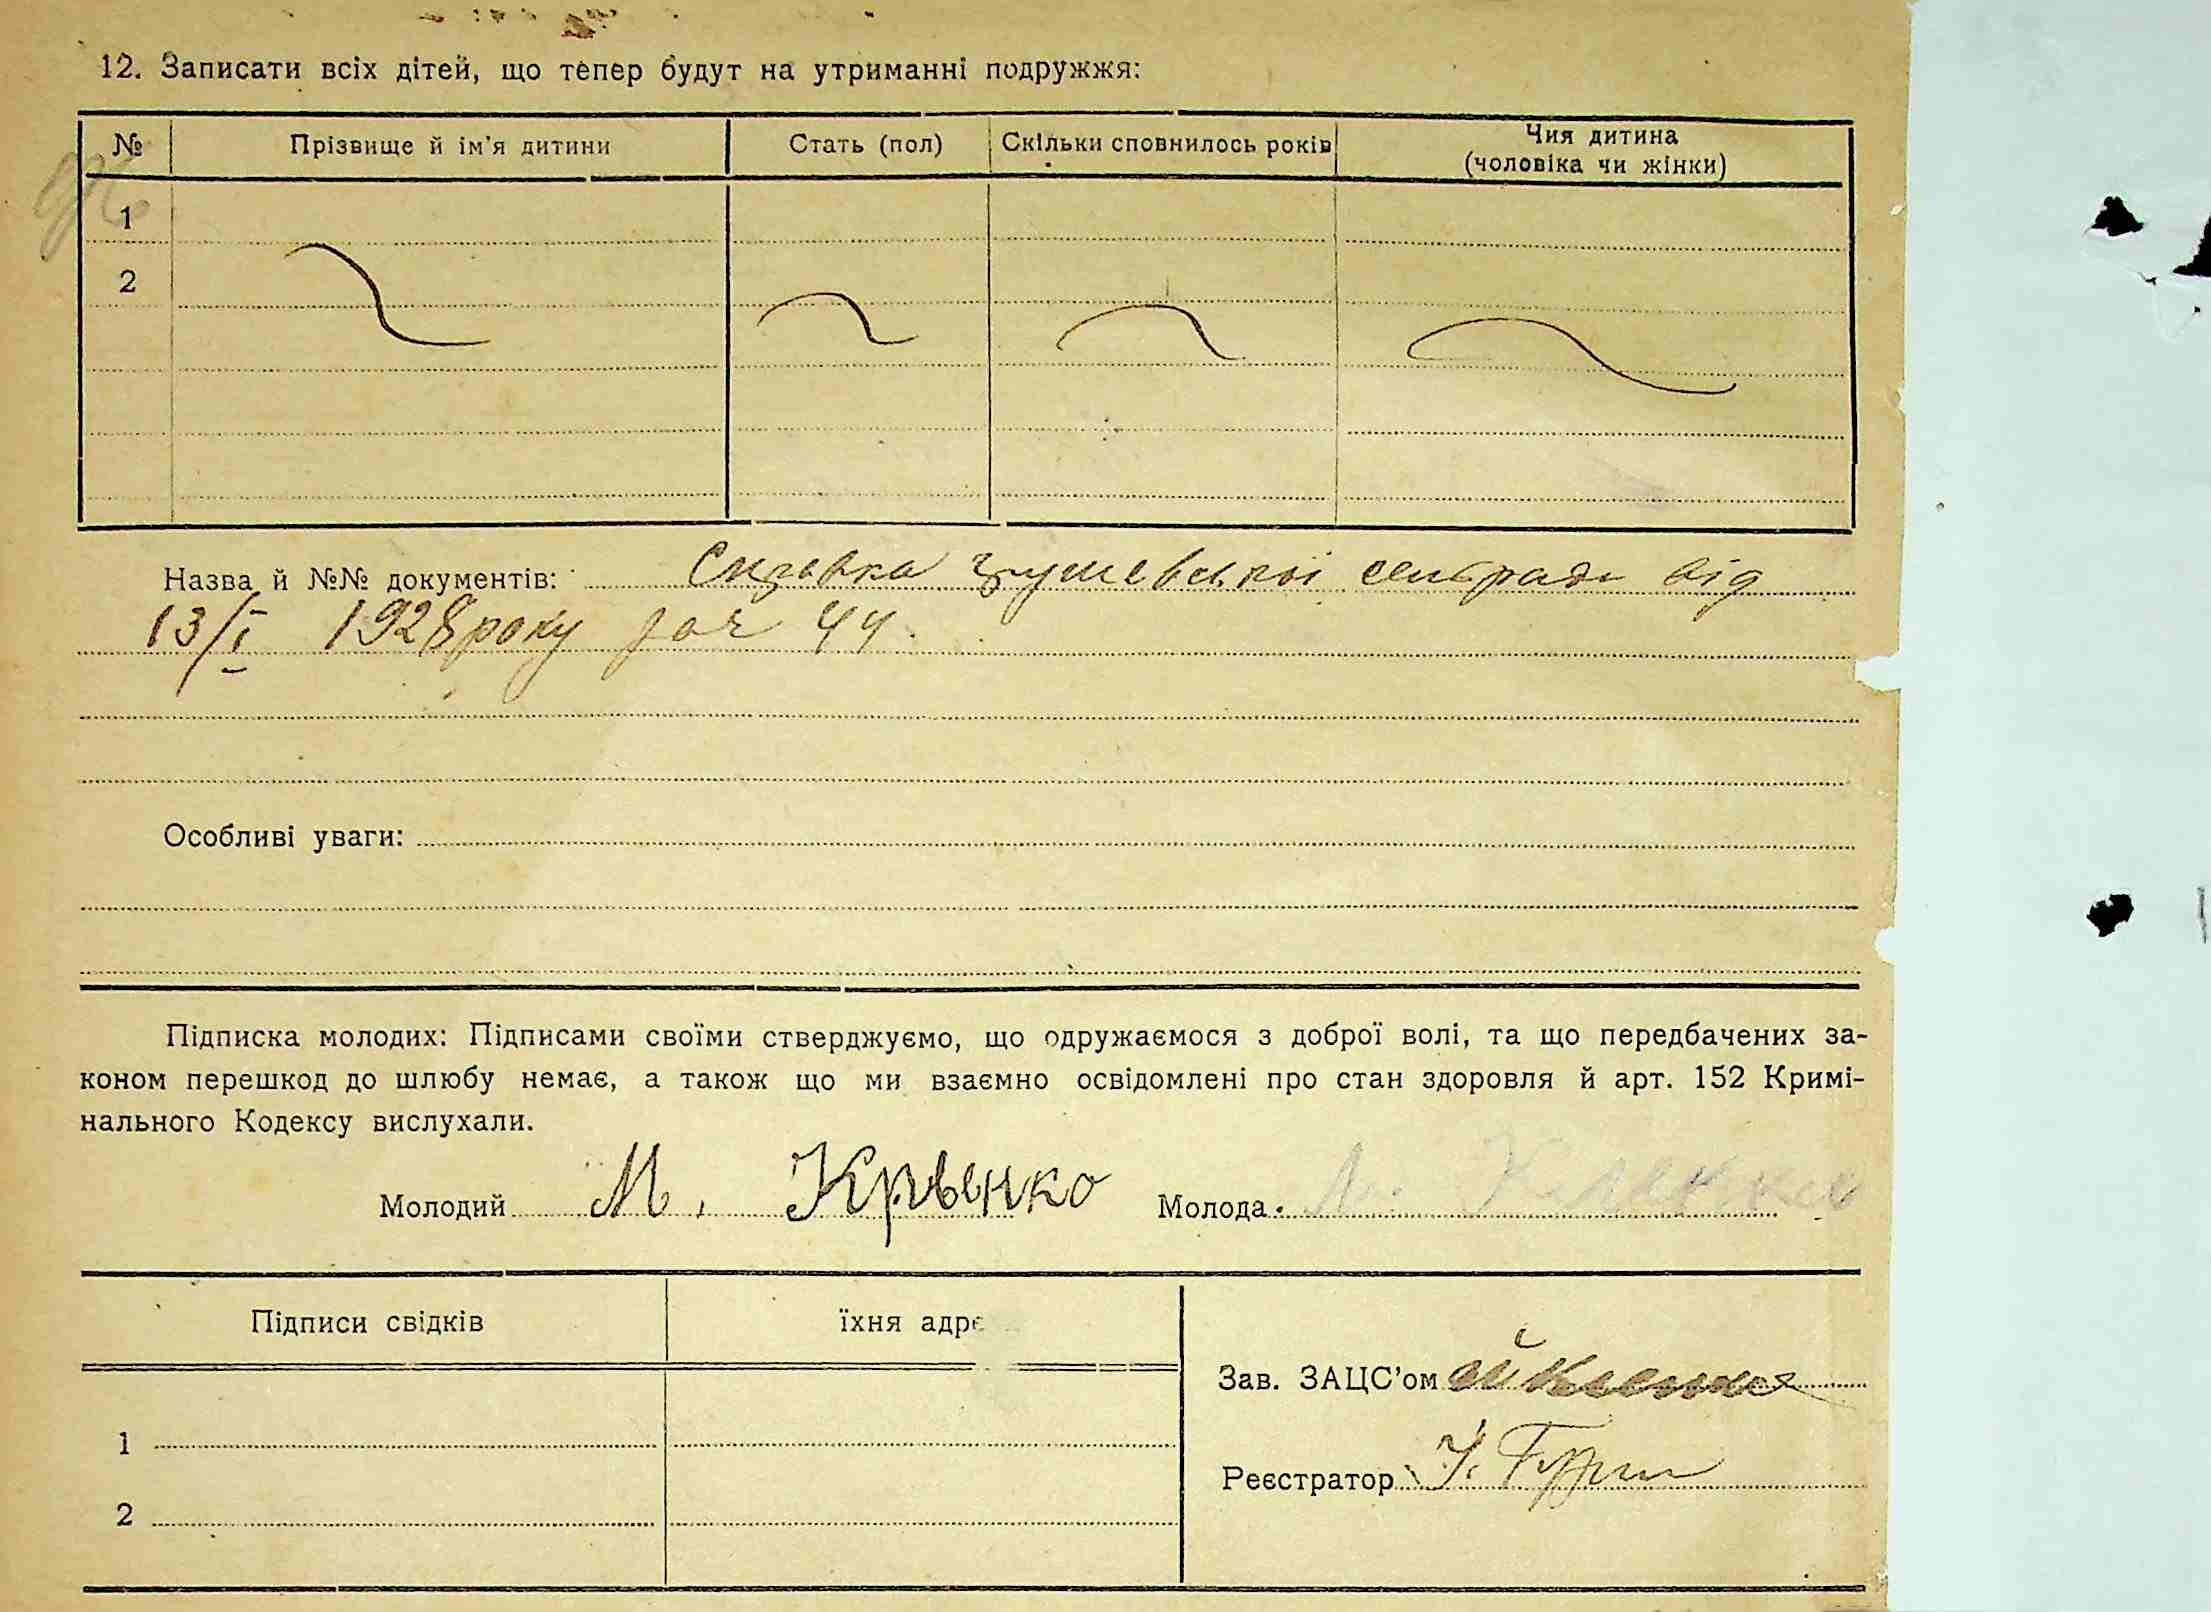 12. Записати всіх дітей, що тепер будут на утриманні подружжя:
№ Прізвище й ім'я дитини Стать (пол) Скільки сповнилось років Чия дитина (чоловіка чи жінки)
1
2
Назва й №№ документів: Справка сельради від
13/I 1928 року за № 44.
Особливі уваги:
Підписка молодих: Підписами своїми стверджуємо, що одружаємося з доброї волі, та що передбачених за-
коном перешкод до шлюбу немає, а також що ми взаємно освідомлені про стан здоровля й арт. 152 Кримі-
нального Кодексу вислухали.
Молодий М. Молода
Підписи свідків їхня адре
Зав. ЗАЦС'ом
1
Реєстратор
2